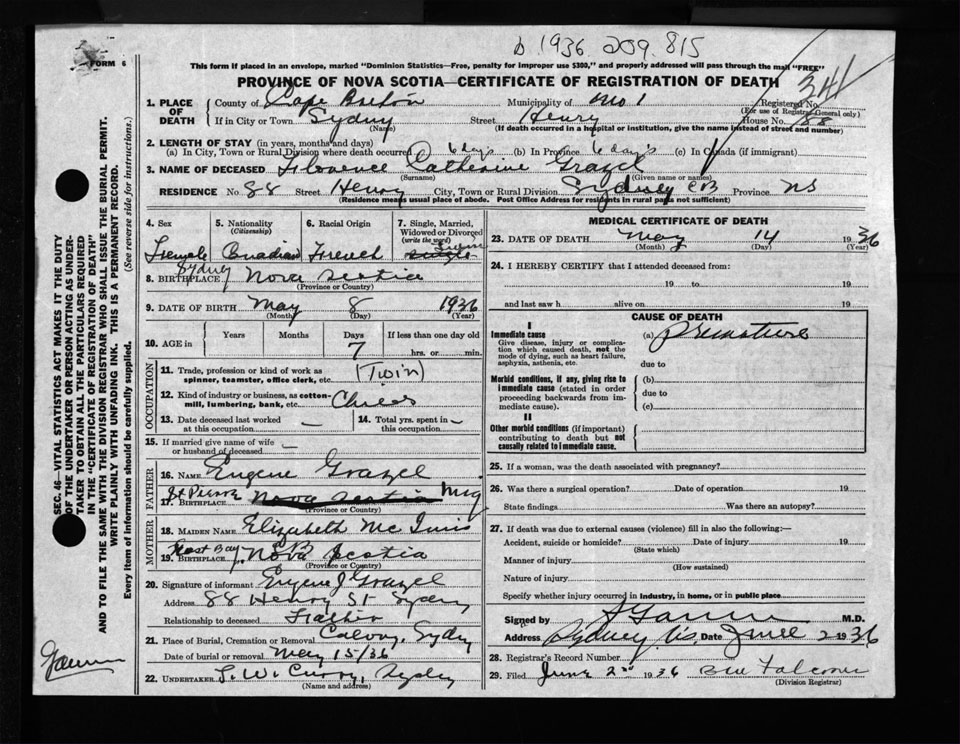 D 1936 209.815
FORM 6
This form if placed in an envelope, marked "Dominion Statistics—Free, penalty for improper use $300," and properly addressed will pass through the mail "FREE"
PROVINCE OF NOVA SCOTIA—CERTIFICATE OF REGISTRATION OF DEATH
1. PLACE OF DEATH
County of Cape Breton Municipality of No 1 Registered No.
(For use of Registrar-General only)
If in City or Town Sydney Street Henry House No. 88
(Name) (If death occurred in a hospital or institution, give the name instead of street and number)
2. LENGTH OF STAY (in years, months and days)
(a) In City, Town or Rural Division where death occurred 6 days (b) In Province 6 days (c) In Canada (if immigrant)
3. NAME OF DECEASED Florence Catherine Grazel
(Surname) (Given name or names)
RESIDENCE No. 88 Street Henry City, Town or Rural Division Sydney CB Province NS
(Residence means usual place of abode. Post Office Address for residents in rural parts not sufficient)
4. Sex
Female
5. Nationality
(Citizenship)
Canadian
6. Racial Origin
French
7. Single, Married,
Widowed or Divorced
(write the word)
Single
8. BIRTHPLACE Sydney Nova Scotia
(Province or Country)
9. DATE OF BIRTH May 8 1936
(Month) (Day) (Year)
10. AGE in
Years
Months
Days
7
If less than one day old
hrs. or min.
OCCUPATION
11. Trade, profession or kind of work as
spinner, teamster, office clerk, etc. (Twin)
12. Kind of industry or business, as cotton-
mill, lumbering, bank, etc. Child
13. Date deceased last worked
at this occupation —
14. Total yrs. spent in
this occupation —
15. If married give name of wife
or husband of deceased —
FATHER
16. NAME Eugene Grazel
17. BIRTHPLACE St Pierre Nova Scotia Miq
(Province or Country)
MOTHER
18. MAIDEN NAME Elizabeth Mc Innis
19. BIRTHPLACE East Bay CB Nova Scotia
(Province or Country)
20. Signature of informant Eugene J Grazel
Address 88 Henry St Sydney
Relationship to deceased Father
21. Place of Burial, Cremation or Removal Calvary, Sydney
Date of burial or removal May 15/36
22. UNDERTAKER T. W. Curry, Sydney
(Name and address)
MEDICAL CERTIFICATE OF DEATH
23. DATE OF DEATH May 14 1936
(Month) (Day) (Year)
24. I HEREBY CERTIFY that I attended deceased from:
19 to 19
and last saw h alive on 19
CAUSE OF DEATH
I
Immediate cause
Give disease, injury or complica-
tion which caused death, not the
mode of dying, such as heart failure,
asphyxia, asthenia, etc.
(a) Premature
due to
Morbid conditions, if any, giving rise to
immediate cause (stated in order
proceeding backwards from im-
mediate cause).
(b)
due to
(c)
II
Other morbid conditions (if important)
contributing to death but not
causally related to immediate cause.
25. If a woman, was the death associated with pregnancy?
26. Was there a surgical operation? Date of operation 19
State findings Was there an autopsy?
27. If death was due to external causes (violence) fill in also the following:—
Accident, suicide or homicide? Date of injury 19
(State which)
Manner of injury
(How sustained)
Nature of injury
Specify whether injury occurred in industry, in home, or in public place
Signed by M.D.
Address Sydney NS Date June 2 1936
28. Registrar's Record Number
29. Filed June 2nd 1936
(Division Registrar)
SEC. 46—VITAL STATISTICS ACT MAKES IT THE DUTY
OF THE UNDERTAKER OR PERSON ACTING AS UNDER-
TAKER TO OBTAIN ALL THE PARTICULARS REQUIRED
IN THE "CERTIFICATE OF REGISTRATION OF DEATH"
AND TO FILE THE SAME WITH THE DIVISION REGISTRAR WHO SHALL ISSUE THE BURIAL PERMIT.
WRITE PLAINLY WITH UNFADING INK. THIS IS A PERMANENT RECORD.
Every item of information should be carefully supplied. (See reverse side for instructions.)